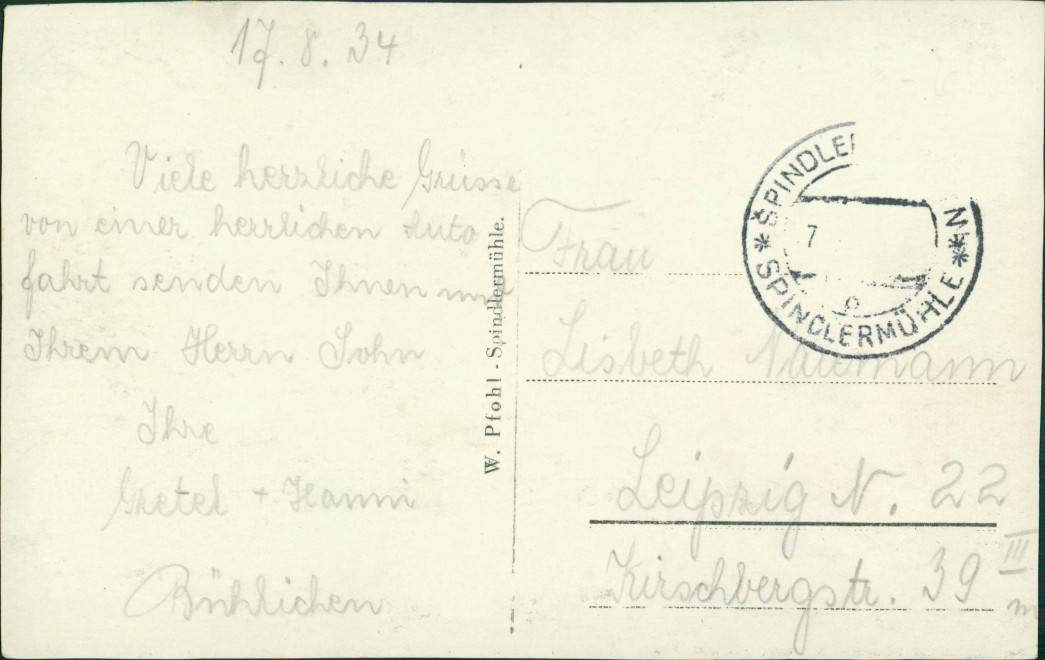 17. 8. 34
Viele herzliche Grüsse
von einer herrlichen Auto
fahrt senden Ihnen und
Ihrem Herrn Sohn
Ihre
Gretel + Hanni
W. Pfohl - Spindlermühle.
SPINDLE
SPINDLERMÜHLE
7
Frau
Lisbeth Naumann
Leipzig N. 22
Kirschbergstr. 39 III